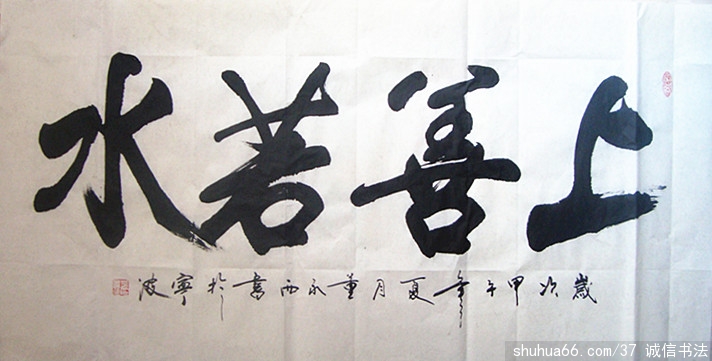 上善若水
歲次甲午年夏月董永西書於寧波
shuhua66.com/37 诚信书法